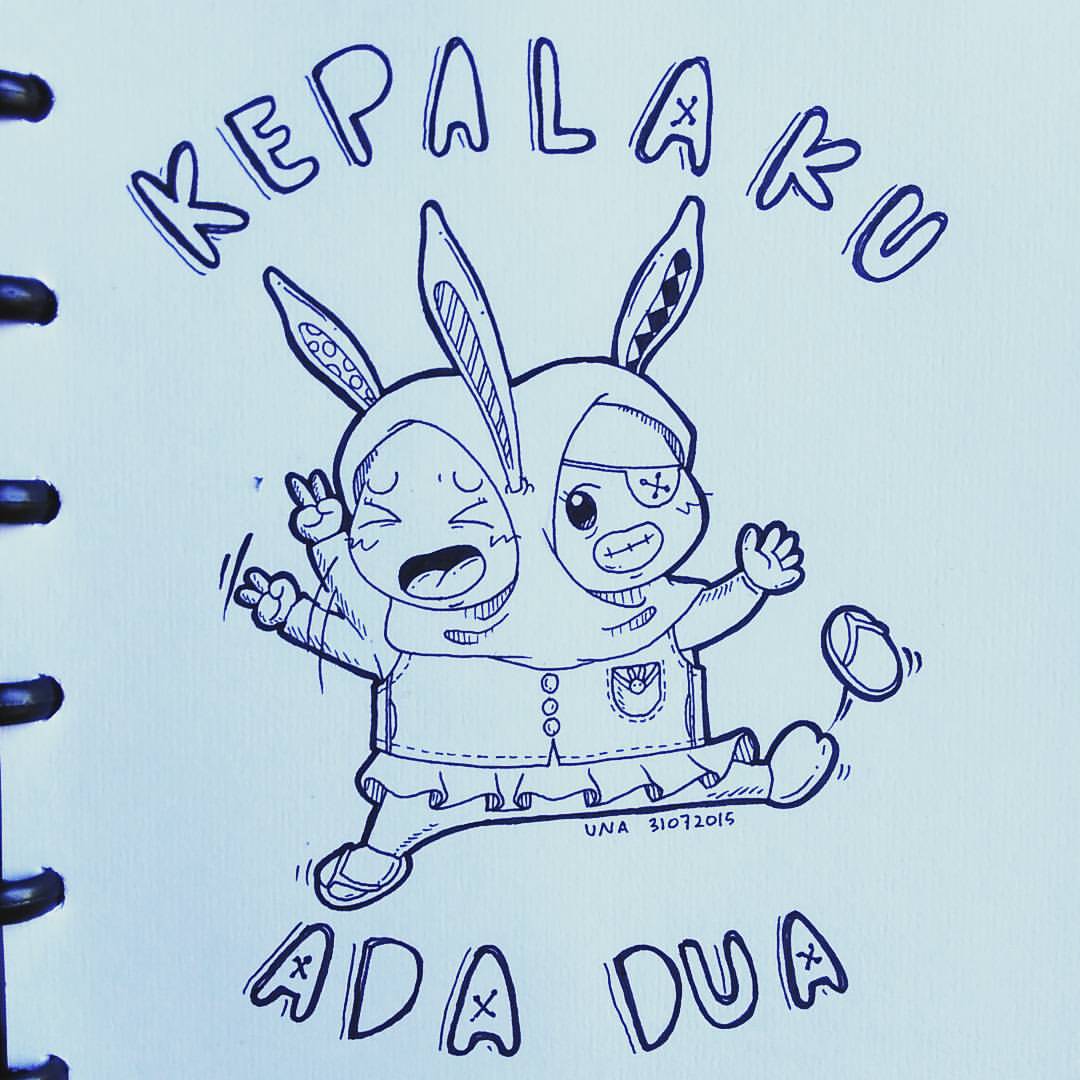 KEPALAKU
UNA 31072015
ADA DUA